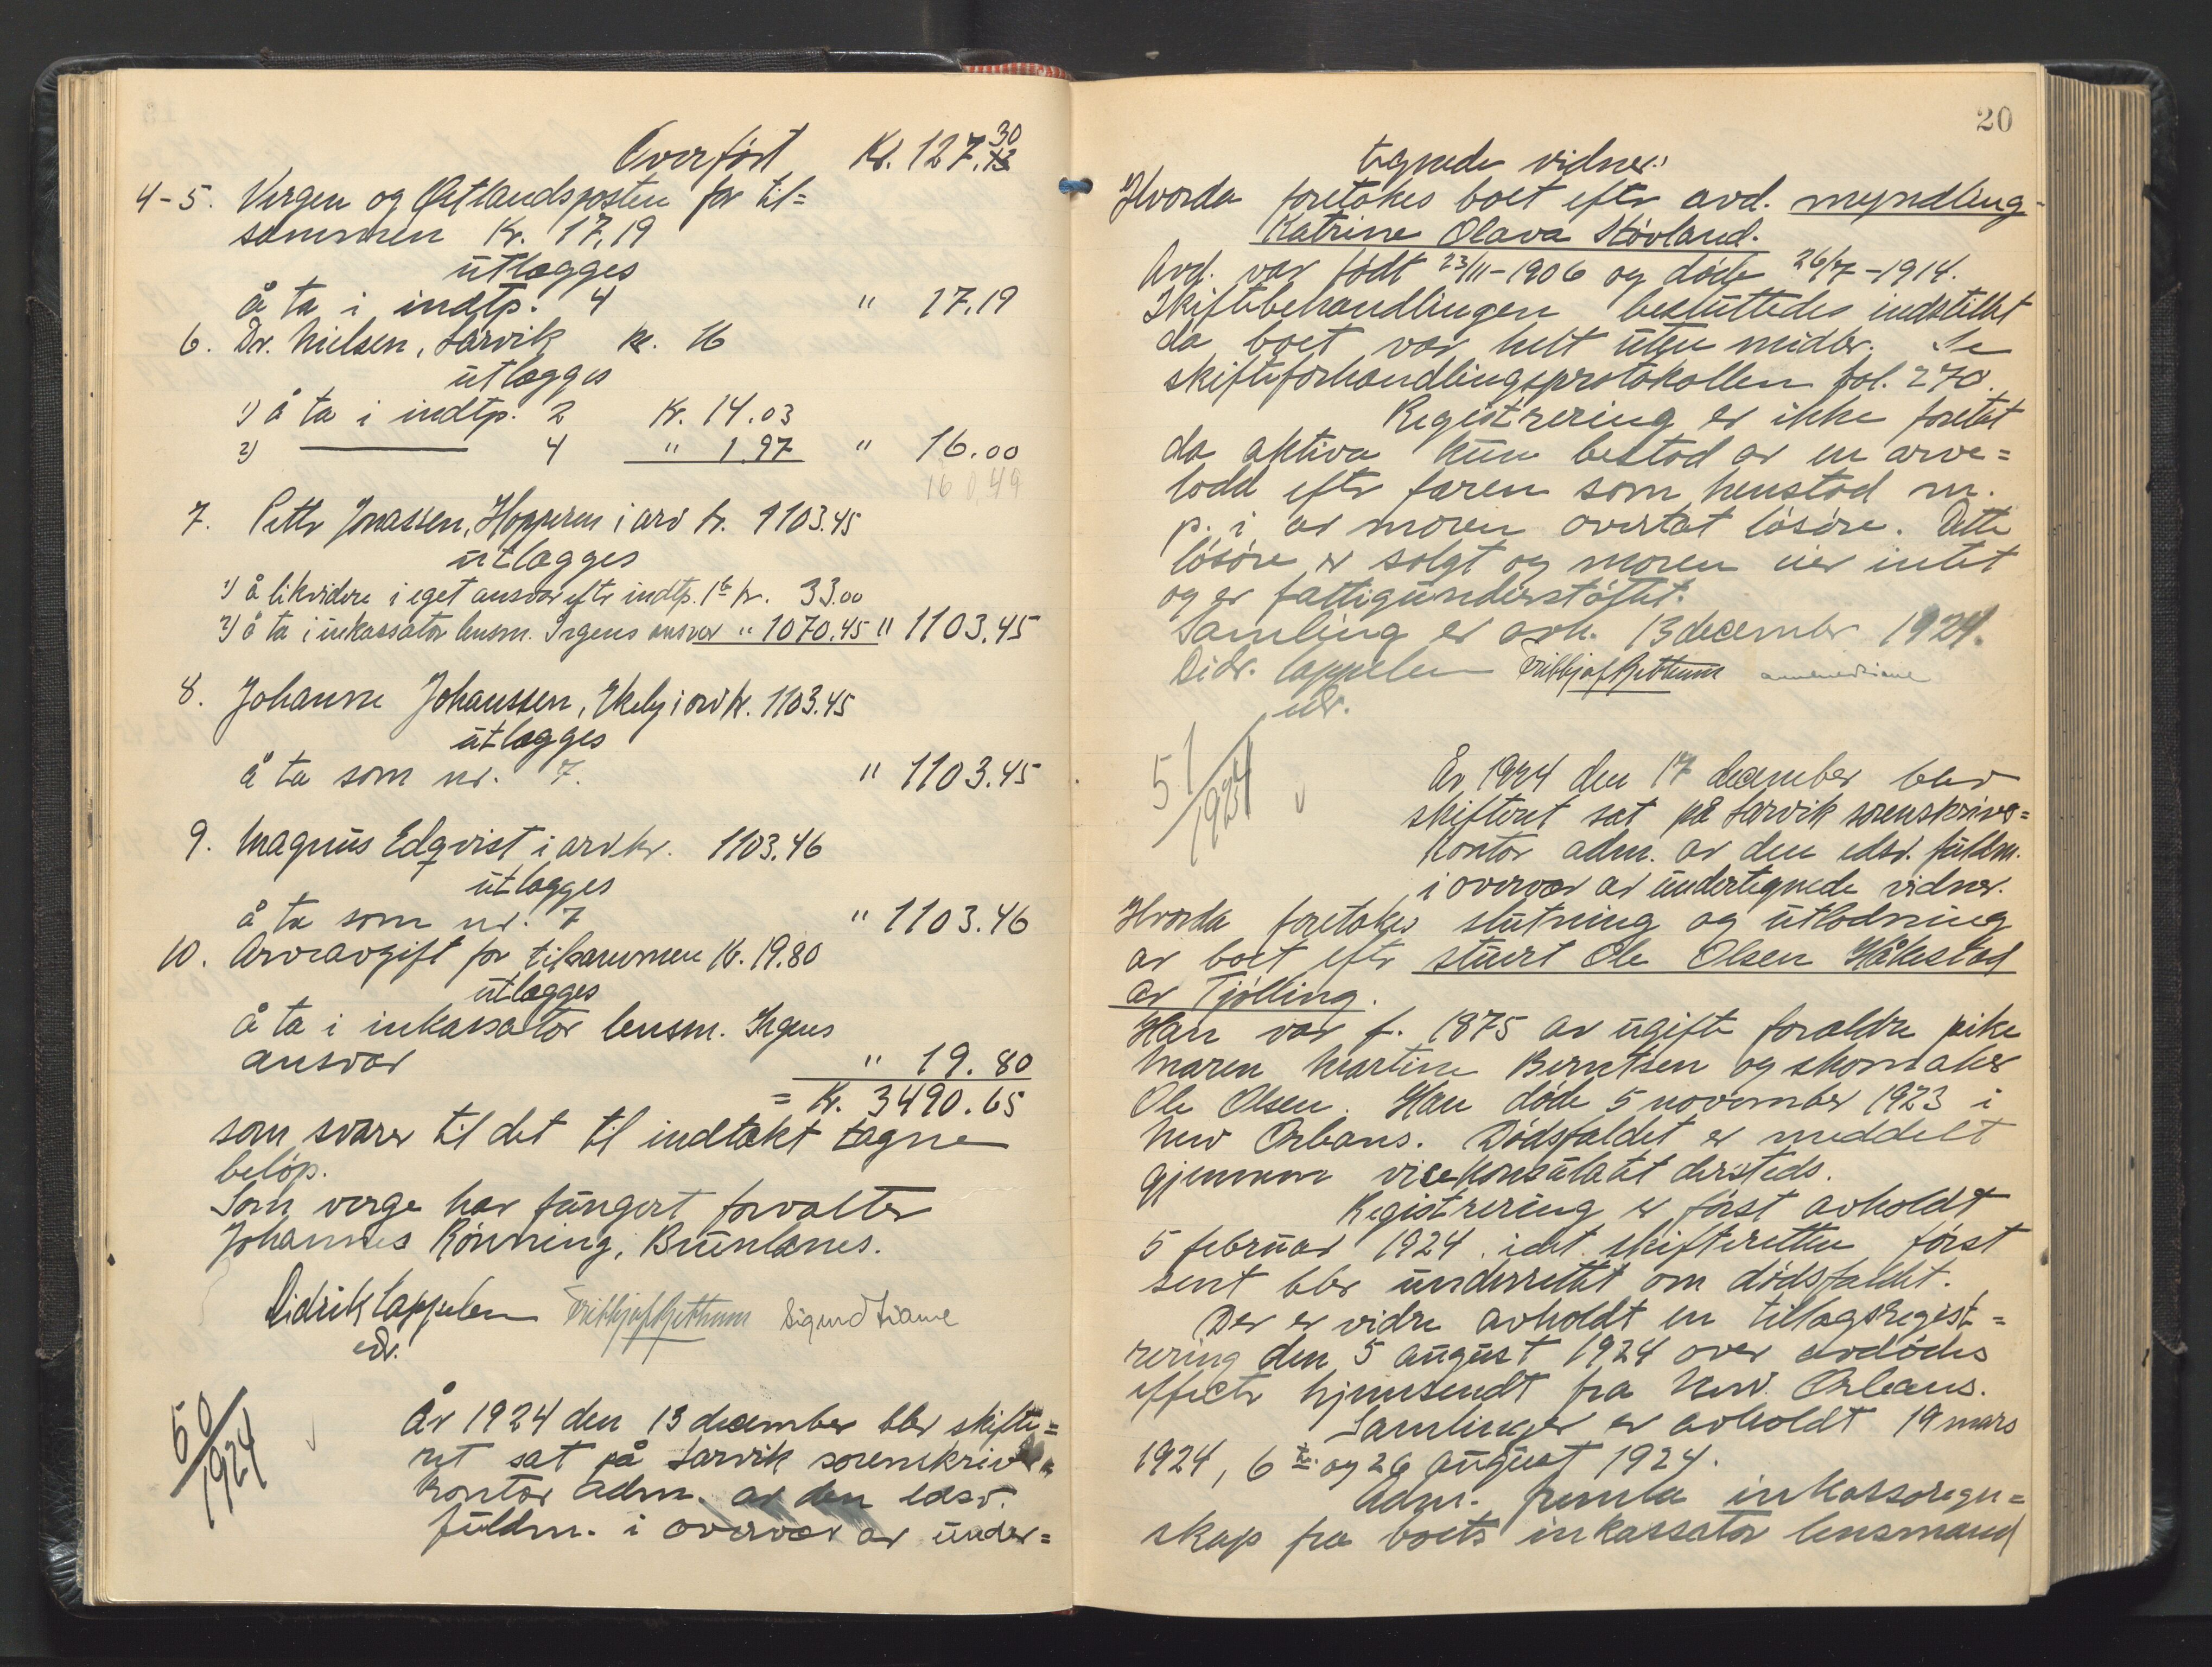 Overført Kr. 127.30
4-5. Vergen og Østlandsposten for til=
sammen Kr. 17.19
utlægges
å ta i indtp. 4 " 17.19
6. Dr. Nielsen, Larvik kr. 16
utlægges
1) å ta i indtp. 2 Kr. 14.03
2) ——— 4 " 1.97 " 16.00
160,49
7. Petter Jonassen, Hopperen i arv kr. 1103.45
utlægges
1) å likvidere i eget ansvar efter indtp. 1b kr. 33.00
2) å ta i inkassator lensm. Irgens ansvar " 1070.45 " 1103.45
8. Johanne Johanssen, Ekeby i arv kr. 1103.45
utlægges
å ta som nr. 7. " 1103.45
9. Magnus Edqvist i arv kr. 1103.46
utlægges
å ta som nr. 7 " 1103.46
10. Arveavgift for tilsammen Kr. 19.80
utlægges
å ta i inkassator lensm. Irgens
ansvar " 19.80
= Kr. 3490.65
som svarer til det til indtækt tagne
beløp.
Som verge har fungert forvalter
Johannes Rönning, Brunlanes.
Didrik Cappelen Sigurd Liane
edsv.
50/1924
År 1924 den 13 december blev skifte=
ret sat på Larvik sorenskriver=
kontor adm. av den edsv.
fuldm. i overvær av under=
20
tegnede vidner:
Hvorda foretokes boet efter avd. myndling
Katrine Olava Stövland.
Avd. var født 23/11-1906 og døde 26/7-1914.
Skiftebehandlingen besluttedes indstillet
da boet var helt uten midler. Se
skifteforhandlingsprotokollen fol. 270.
Registrering er ikke foretat
da aktiva kun bestod av en arve=
lodd efter faren som henstod m.
p. i av moren overtat løsøre. Dette
løsøre er solgt og moren eier intet
og er fattigunderstøttet.
Samling er avh. 13 december 1924.
Didr. Cappelen
edsv.
51/1924
År 1924 den 17 december blev
skifteret sat på Larvik sorenskriver=
kontor adm. av den edsv. fuldm.
i overvær av undertegnede vidner.
Hvorda foretokes slutning og utlodning
av boet efter stuert Ole Olsen Håkestad
av Tjølling.
Han var f. 1875 av ugifte forældre pike
Maren Martine Berntsen og skomaker
Ole Olsen. Han døde 5 november 1923 i
New Orleans. Dødsfaldet er meddelt
gjennem vicekonsulatet dersteds.
Registrering er først avholdt
5 februar 1924 idet skifteretten først
sent blev underrettet om dødsfaldet.
Der er videre avholdt en tillægsregist=
rering den 5 august 1924 over avdødes
effecter hjemsendt fra New Orleans.
Samlinger er avholdt 19 mars
1924, 6te og 26 august 1924.
Adm. fremla inkassoregn=
skap fra boets inkassator lensmand